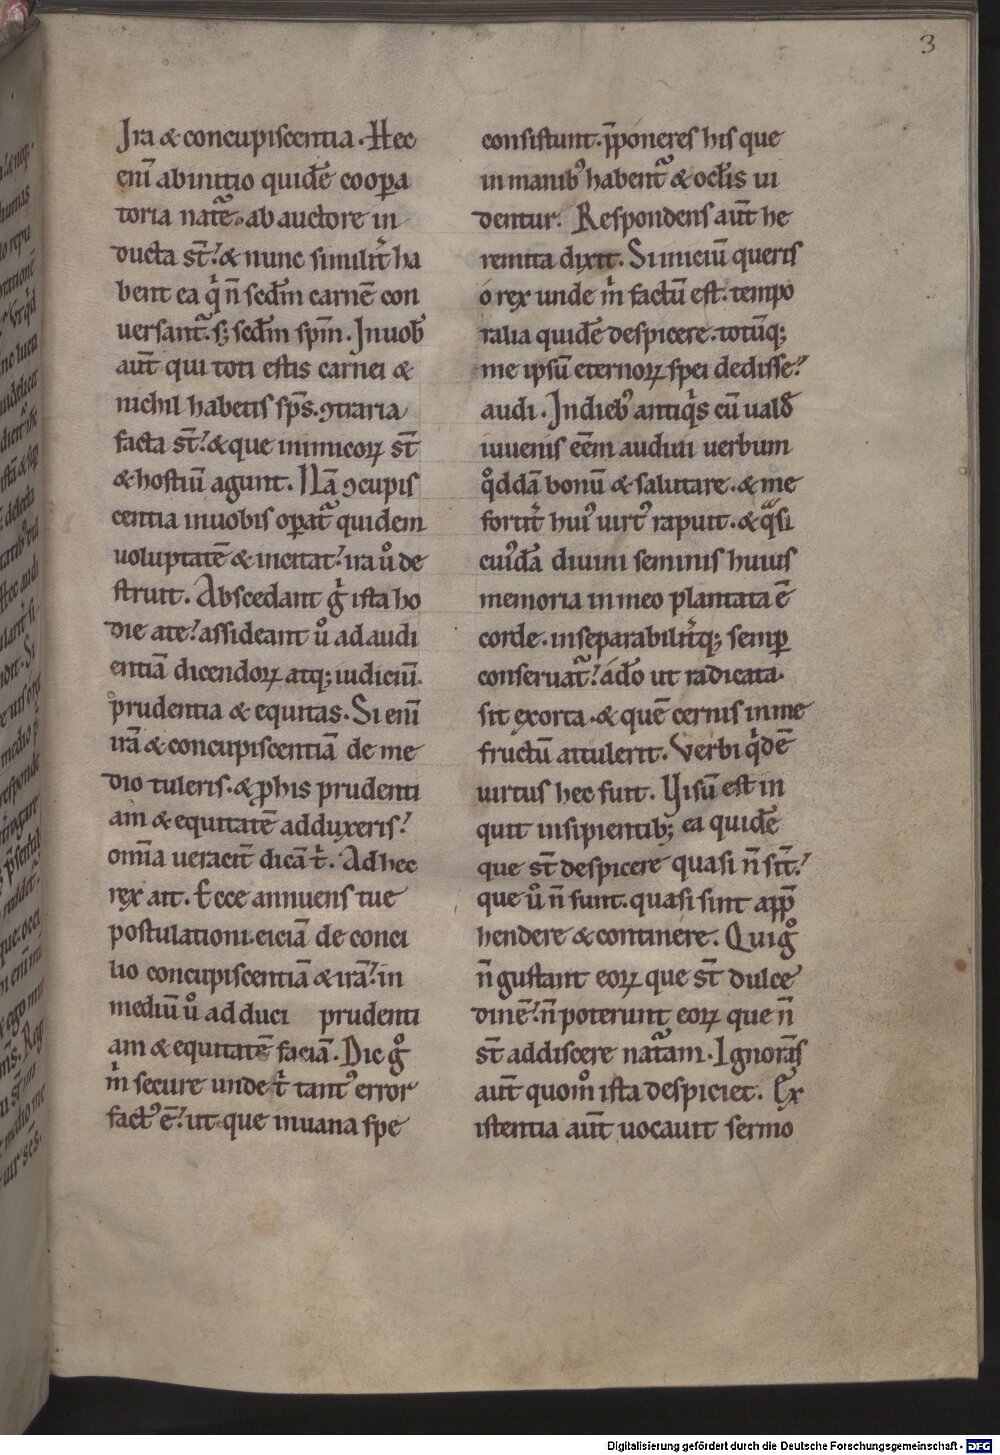 3
Ira & concupiscentia. Hec
eni̅ ab initio quide̅ coop̲a
toria nat͛e. ab auctore in
ducta st̅. & nunc similit̉ ha
bent ea q̉ n̅ scd̅m carne̅ con
uersant᷑. s; scd̅m sp̅m. In uob̅
aut̅ qui toti estis carnei &
nichil habetis sp̅s. ꝯtraria
facta st̅. & que inimicoꝝ st̅
& hostiu̅ agunt. Na̅ ꝯcupis
centia in uobis op̲at᷑ quidem
voluptate̅ & incitat. ira ů de
struit. Abscedant g̉ ista ho
die a te. assideant ů ad audi
entia̅ dicendoꝝ atq; iudiciu̅.
prudentia & equitas. Si eni̅
ira̅ & concupiscentia̅ de me
dio tuleris. & p̲ his prudenti
am & equitate̅ adduxeris.
om̅ia ueracit̉ dica̅ t̉. Ad hec
rex ait. Ecce annuens tue
postulationi. eicia̅ de conci
lio concupiscentia̅ & ira̅. in
mediu̅ ů adduci prudenti
am & equitate̅ facia̅. Dic g̊
m̉ secure unde t̉ tantꝰ error
factꝰ e̅. ut que in uana spe
consistunt. p̅poneres his que
in manibꝰ habent᷑ & oclis ui
dentur. Respondens aut̅ he
remita dixit. Si iniciu̅ queris
o rex unde m̉ factu̅ est. tempo
ralia quide̅ despicere. totu̅q;
me ipsu̅ eternoꝝ spei dedisse.
audi. In diebꝰ antiq̉s cu̅ uald̅
iuuenis ee̅m audiui uerbum
q̊dda̅ bonu̅ & salutare. & me
fortit̉ huiꝰ uirtꝰ rapuit. & q̃si
cuiꝰda̅ diuini seminis huius
memoria in meo plantata e̅
corde. inseparabilit̉q; semp̲
conseruat᷑. adeo ut radicata
sit exorta. & que̅ cernis in me
fructu̅ attulerit. Verbi q̉de̅
uirtus hec fuit. Uisu̅ est in
quit insipientib; ea quide̅
que st̅ despicere quasi n̅ sīt.
que ů n̅ sunt. quasi sint app̅
hendere & continere. Qui g̊
n̅ gustant eoꝝ que st̅ dulce
dine̅. n̅ poterunt eoꝝ que n̅
st̅ addiscere nat᷑am. Ignora̅s
aut̅ quom̊ ista despiciet. Ex
istentia aut̅ uocauit sermo
Digitalisierung gefördert durch die Deutsche Forschungsgemeinschaft - DFG